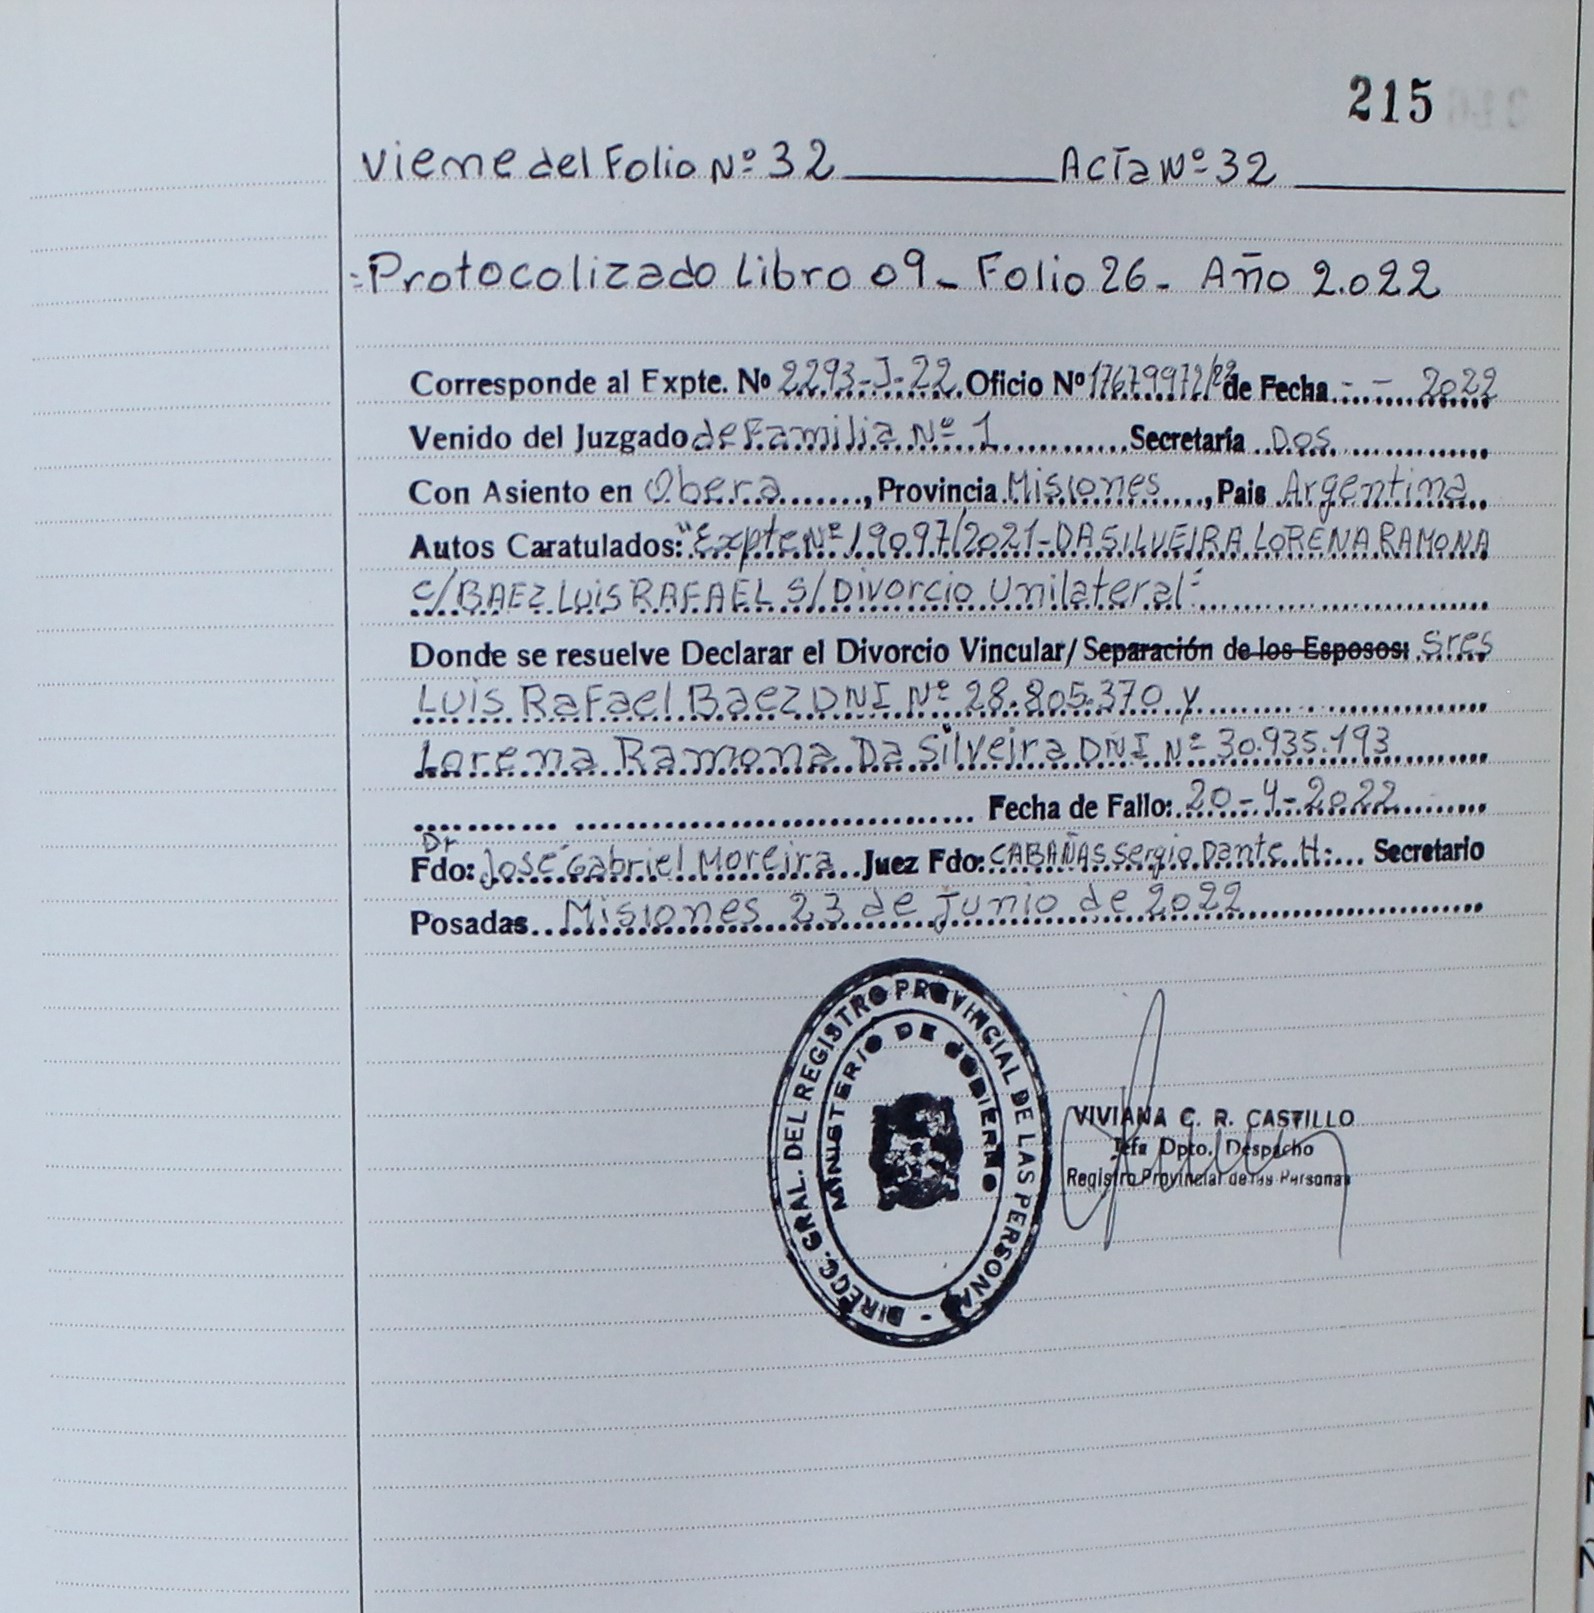 215
Viene del Folio Nº 32 Acta Nº 32
= Protocolizado Libro 09 - Folio 26 - Año 2.022
Corresponde al Expte. Nº 2293-J-22 Oficio Nº 17679972/22 de Fecha - - 2022
Venido del Juzgado de Familia Nº 1 Secretaría Dos
Con Asiento en Obera, Provincia Misiones, Pais Argentina
Autos Caratulados: "Expte Nº 19097/2021-DA SILVEIRA LORENA RAMONA
c/ BAEZ LUIS RAFAEL S/ Divorcio Unilateral"
Donde se resuelve Declarar el Divorcio Vincular/ Separación de los Esposos: Sres
Luis Rafael Baez DNI Nº 28.805.370 y
Lorena Ramona Da Silveira DNI Nº 30.935.193
Fecha de Fallo: 20-4-2022
Dr
Fdo: José Gabriel Moreira Juez Fdo: CABAÑAS Sergio Dante H: Secretario
Posadas Misiones 23 de Junio de 2022
DIRECC. GRAL. DEL REGISTRO PROVINCIAL DE LAS PERSONAS -
MINISTERIO DE GOBIERNO
VIVIANA C. R. CASTILLO
Jefa Dpto. Despacho
Registro Provincial de las Personas